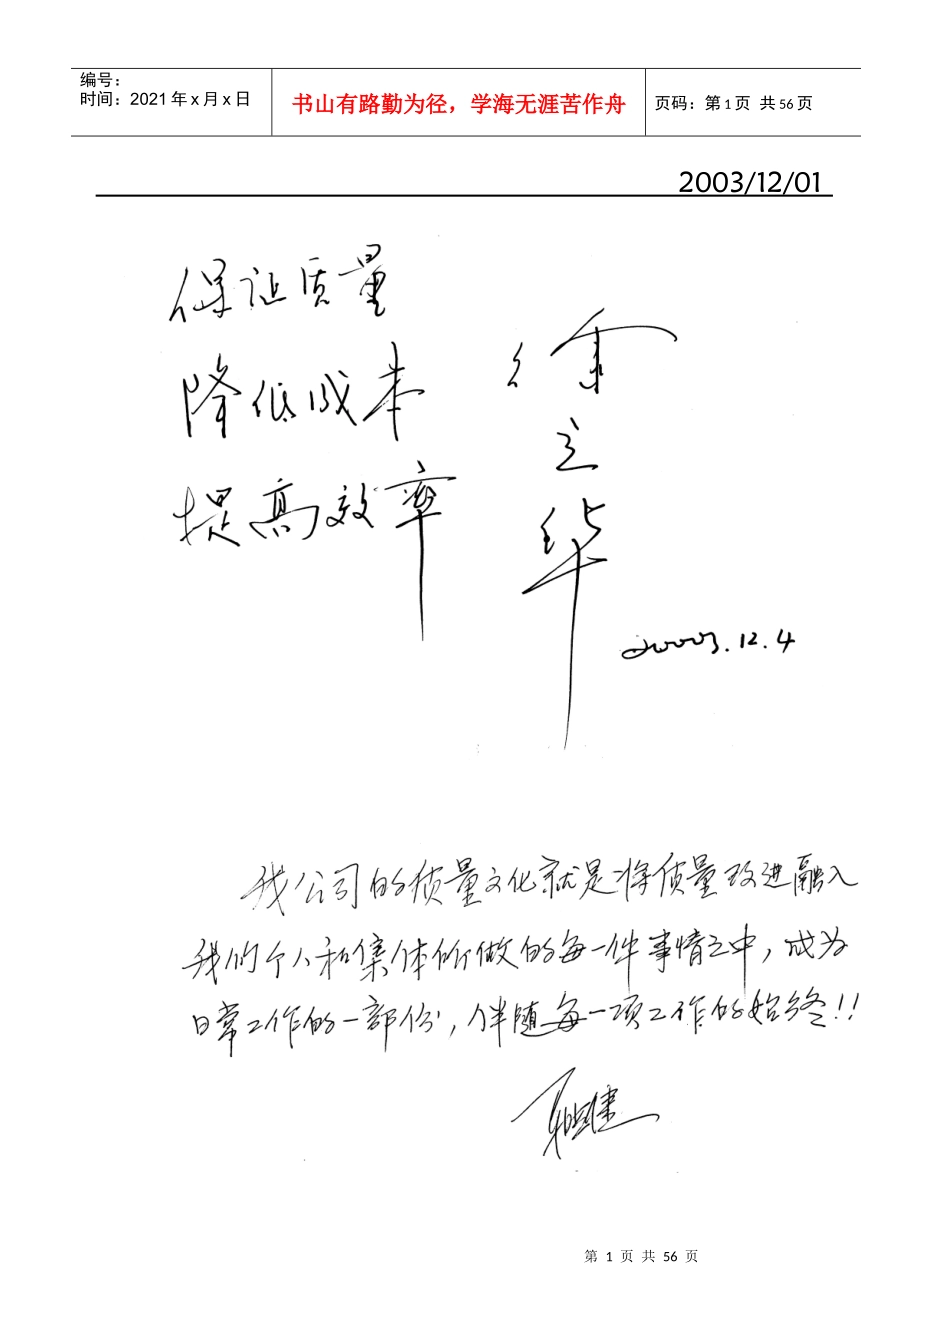 编号：
时间：2021年x月x日
书山有路勤为径，学海无涯苦作舟
页码：第1页 共56页
2003/12/01
保证质量
降低成本
提高效率
徐立华
2003.12.4
我公司的质量文化就是将质量改进融入
我们个人和集体所做的每一件事情之中，成为
日常工作的一部份，伴随每一项工作的始终!!
第 1 页 共 56 页